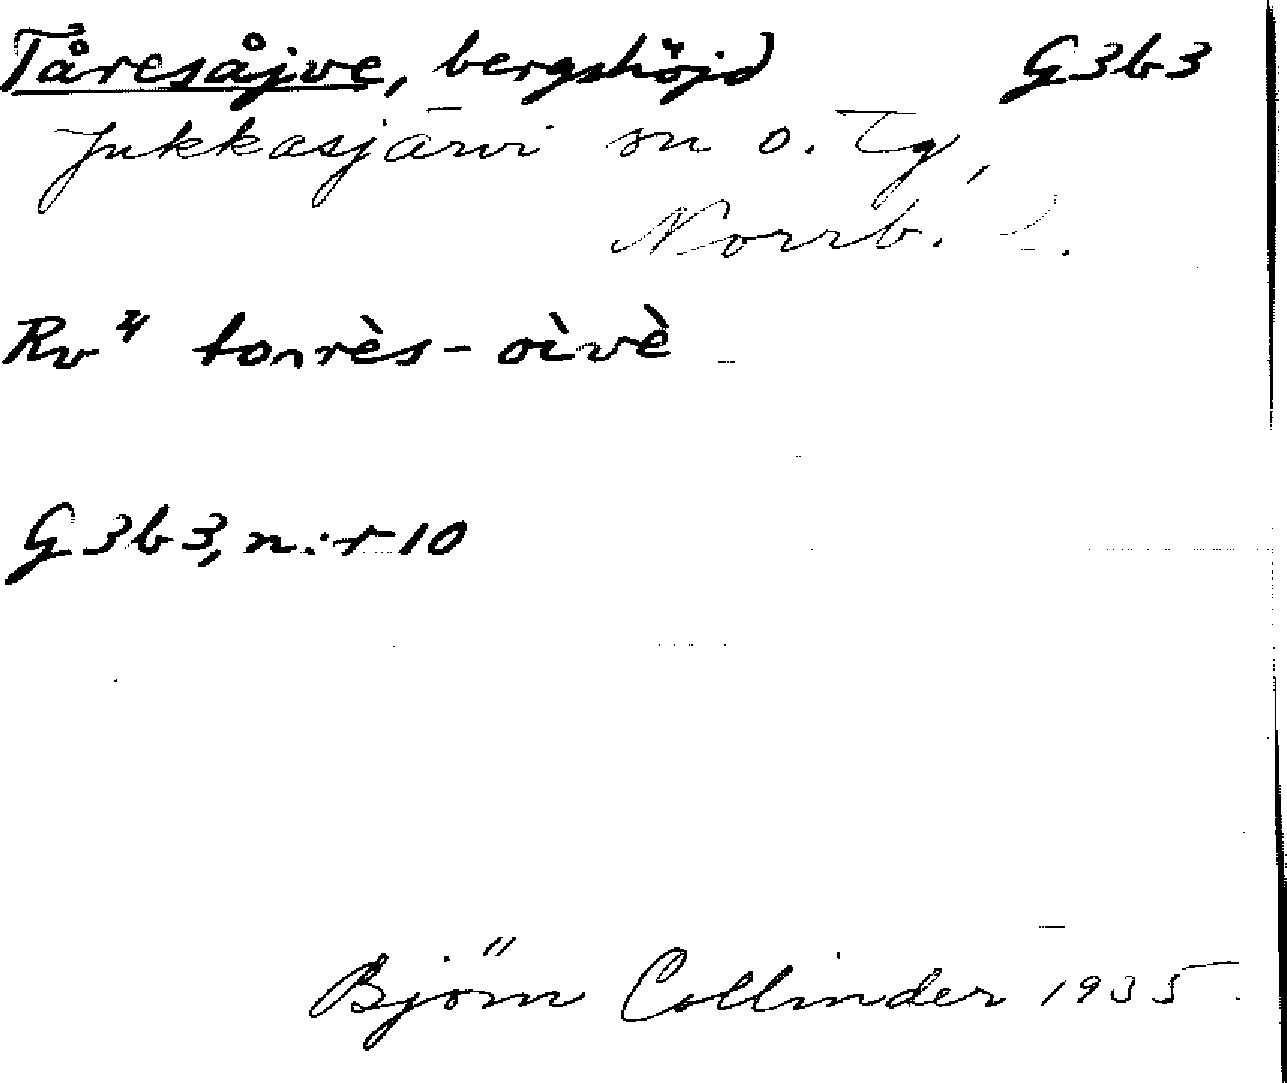 Tåresåjve, bergshöjd G3b3
Jukkasjärvi sn o. Tg,
Norrb. l.
Rv⁴ tonrès-oìvè
G3b3, n:r 10
Björn Collinder 1935.